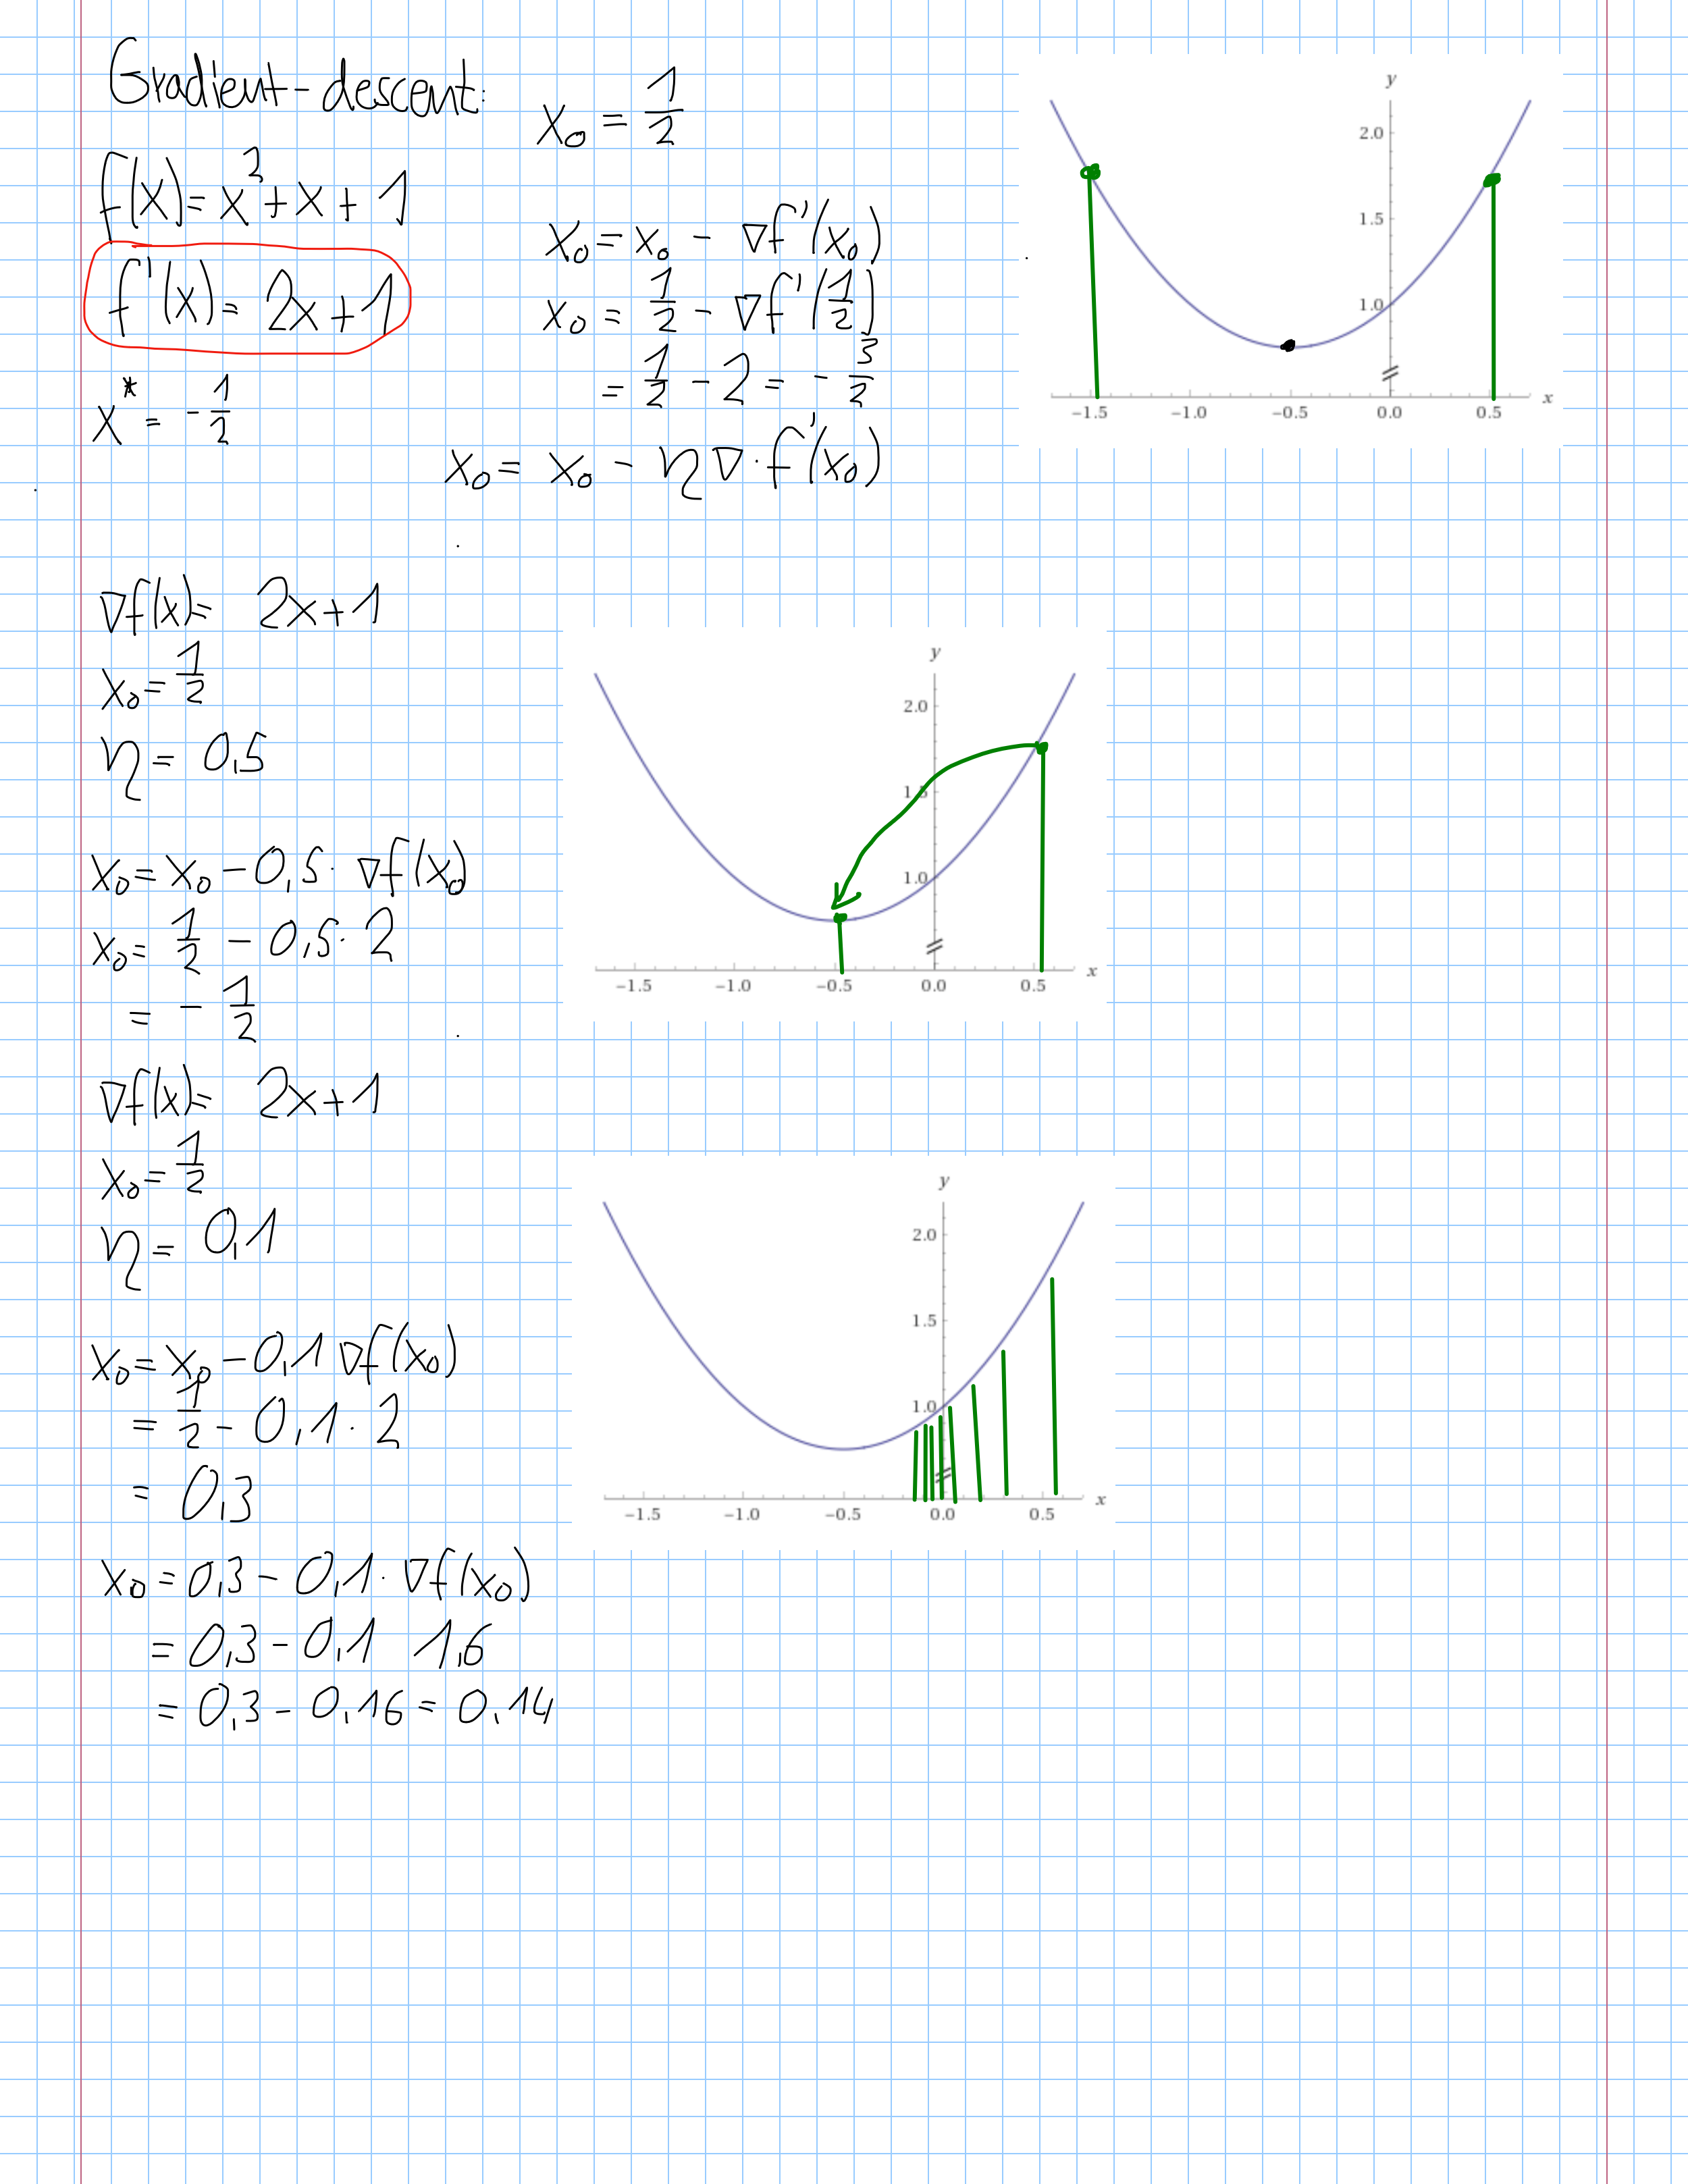 Gradient-descent:
f(x) = x² + x + 1
f'(x) = 2x + 1
x* = - 1/2
x₀ = 1/2
x₀ = x₀ - ∇f'(x₀)
x₀ = 1/2 - ∇f'(1/2)
= 1/2 - 2 = - 3/2
x₀ = x₀ - η∇·f'(x₀)
y
2.0
1.5
1.0
-1.5 -1.0 -0.5 0.0 0.5 x
∇f(x) = 2x + 1
x₀ = 1/2
η = 0,5
x₀ = x₀ - 0,5 · ∇f(x₀)
x₀ = 1/2 - 0,5 · 2
= - 1/2
y
2.0
1.5
1.0
-1.5 -1.0 -0.5 0.0 0.5 x
∇f(x) = 2x + 1
x₀ = 1/2
η = 0,1
x₀ = x₀ - 0,1 ∇f(x₀)
= 1/2 - 0,1 · 2
= 0,3
x₀ = 0,3 - 0,1 · ∇f(x₀)
= 0,3 - 0,1 1,6
= 0,3 - 0,16 = 0,14
y
2.0
1.5
1.0
-1.5 -1.0 -0.5 0.0 0.5 x